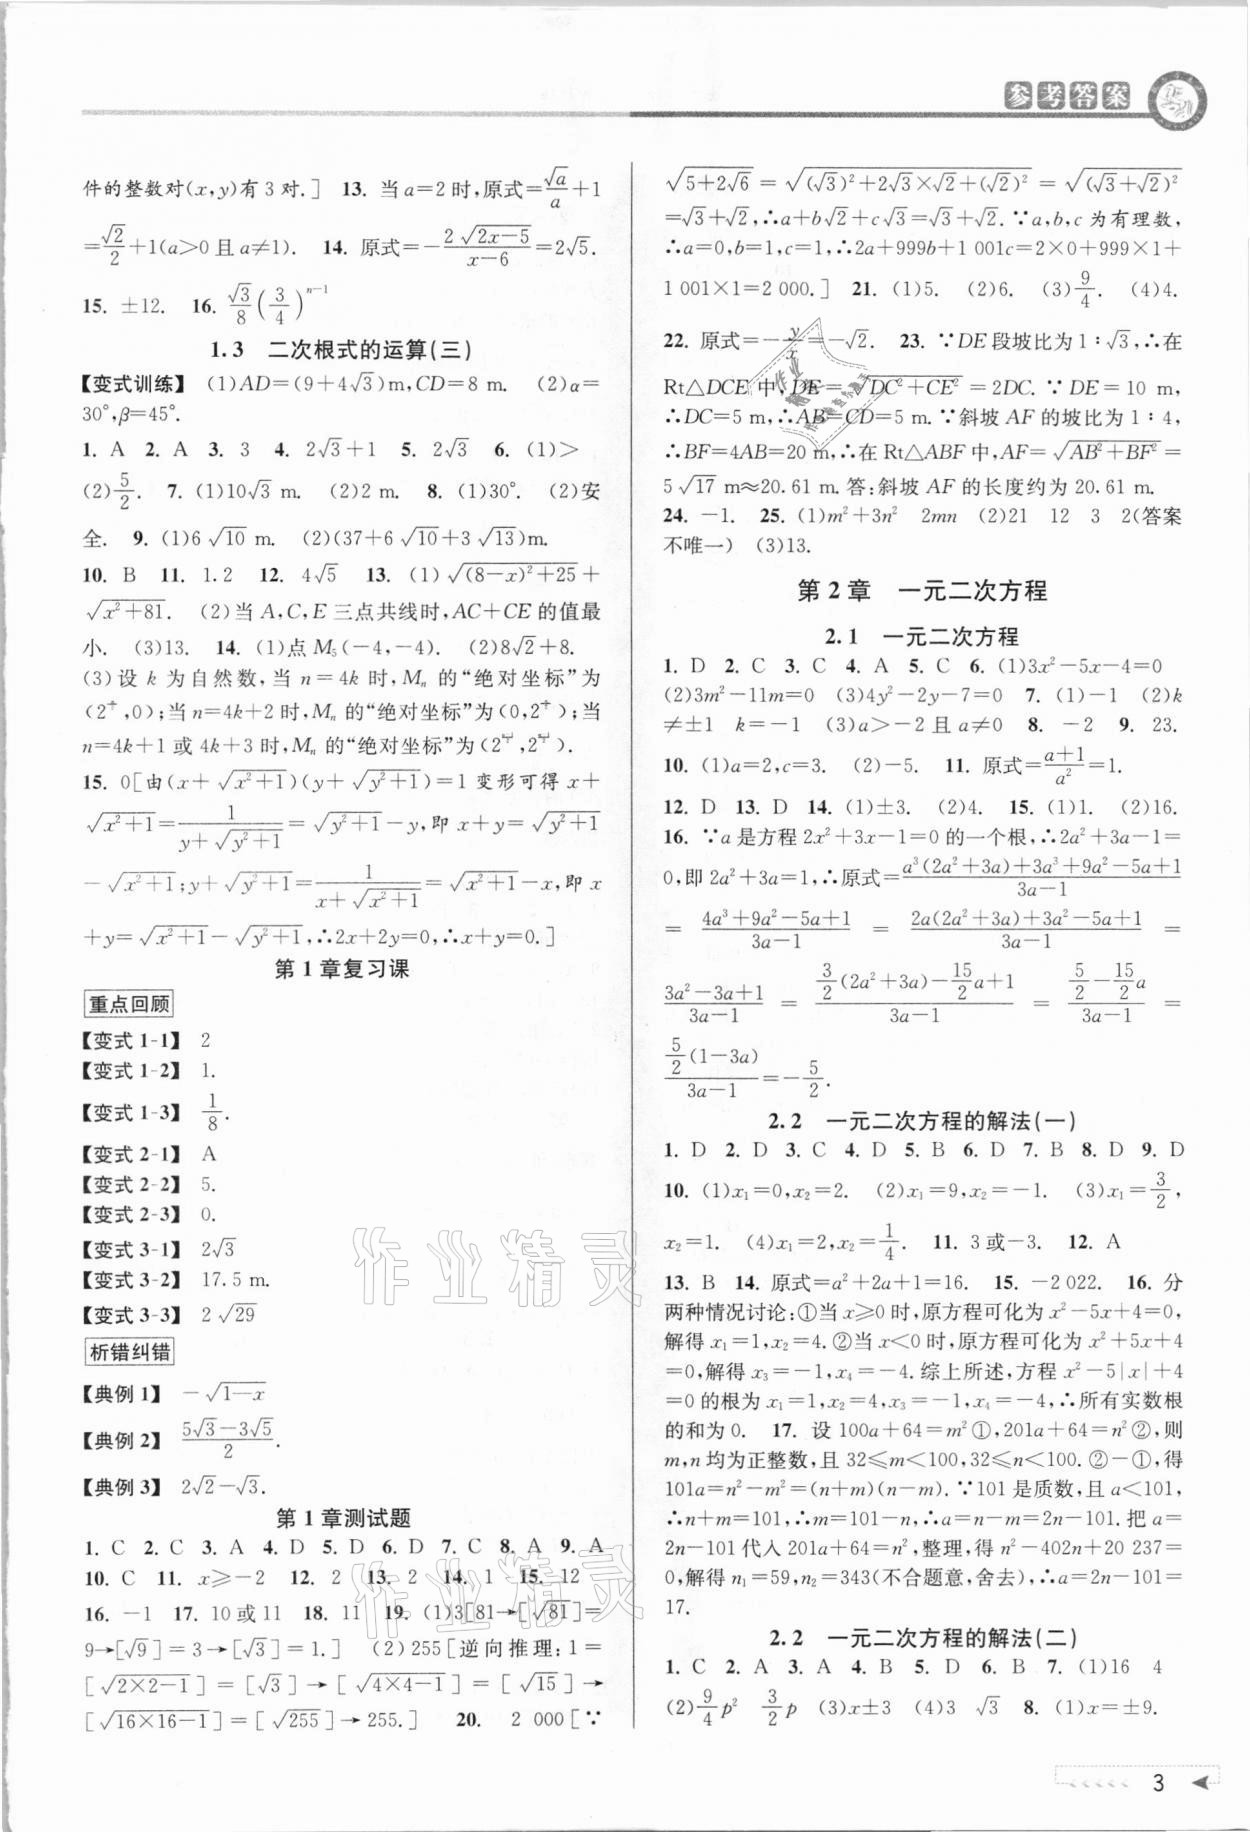 参考答案
件的整数对(x,y)有3对.] 13. 当a=2时,原式=√a/a+1
=√2/2+1(a>0且a≠1). 14. 原式=-2√(2x-5)/(x-6)=2√5.
15. ±12. 16. √3/8(3/4)^(n-1)
1.3 二次根式的运算(三)
【变式训练】 (1)AD=(9+4√3)m,CD=8 m. (2)α=
30°,β=45°.
1. A 2. A 3. 3 4. 2√3+1 5. 2√3 6. (1)>
(2)5/2. 7. (1)10√3 m. (2)2 m. 8. (1)30°. (2)安
全. 9. (1)6√10 m. (2)(37+6√10+3√13)m.
10. B 11. 1.2 12. 4√5 13. (1)√((8-x)²+25)+
√(x²+81). (2)当A,C,E三点共线时,AC+CE的值最
小. (3)13. 14. (1)点M₅(-4,-4). (2)8√2+8.
(3)设k为自然数,当n=4k时,Mₙ的“绝对坐标”为
(2 ,0);当n=4k+2时,Mₙ的“绝对坐标”为(0,2 );当
n=4k+1或4k+3时,Mₙ的“绝对坐标”为(2 ,2 ).
15. 0[由(x+√(x²+1))(y+√(y²+1))=1变形可得x+
√(x²+1)=1/(y+√(y²+1))=√(y²+1)-y,即x+y=√(y²+1)
-√(x²+1);y+√(y²+1)=1/(x+√(x²+1))=√(x²+1)-x,即x
+y=√(x²+1)-√(y²+1),∴2x+2y=0,∴x+y=0.]
第1章复习课
重点回顾
【变式1-1】 2
【变式1-2】 1.
【变式1-3】 1/8.
【变式2-1】 A
【变式2-2】 5.
【变式2-3】 0.
【变式3-1】 2√3
【变式3-2】 17.5 m.
【变式3-3】 2√29
析错纠错
【典例1】 -√(1-x)
【典例2】 (5√3-3√5)/2.
【典例3】 2√2-√3.
第1章测试题
1. C 2. C 3. A 4. D 5. D 6. D 7. C 8. A 9. A
10. C 11. x≥-2 12. 2 13. 2 14. 1 15. 12
16. -1 17. 10或11 18. 11 19. (1)3[81→[√81]=
9→[√9]=3→[√3]=1.] (2)255[逆向推理:1=
[√(2×2-1)]=[√3]→[√(4×4-1)]=[√15]→
[√(16×16-1)]=[√255]→255.] 20. 2 000[∵
√(5+2√6)=√((√3)²+2√3×√2+(√2)²)=√((√3+√2)²)
=√3+√2,∴a+b√2+c√3=√3+√2.∵a,b,c为有理数,
∴a=0,b=1,c=1,∴2a+999b+1 001c=2×0+999×1+
1 001×1=2 000.] 21. (1)5. (2)6. (3)9/4. (4)4.
22. 原式=-y/x=-√2. 23. ∵DE段坡比为1∶√3,∴在
Rt△DCE中,DE=√(DC²+CE²)=2DC.∵DE=10 m,
∴DC=5 m,∴AB=CD=5 m.∵斜坡AF的坡比为1∶4,
∴BF=4AB=20 m,∴在Rt△ABF中,AF=√(AB²+BF²)=
5√17 m≈20.61 m.答:斜坡AF的长度约为20.61 m.
24. -1. 25. (1)m²+3n² 2mn (2)21 12 3 2(答案
不唯一) (3)13.
第2章 一元二次方程
2.1 一元二次方程
1. D 2. C 3. C 4. A 5. C 6. (1)3x²-5x-4=0
(2)3m²-11m=0 (3)4y²-2y-7=0 7. (1)-1 (2)k
≠±1 k=-1 (3)a>-2且a≠0 8. -2 9. 23.
10. (1)a=2,c=3. (2)-5. 11. 原式=(a+1)/a²=1.
12. D 13. D 14. (1)±3. (2)4. 15. (1)1. (2)16.
16. ∵a是方程2x²+3x-1=0的一个根,∴2a²+3a-1=
0,即2a²+3a=1,∴原式=(a³(2a²+3a)+3a³+9a²-5a+1)/(3a-1)
=(4a³+9a²-5a+1)/(3a-1)=(2a(2a²+3a)+3a²-5a+1)/(3a-1)=
(3a²-3a+1)/(3a-1)=(3/2(2a²+3a)-15/2a+1)/(3a-1)=(5/2-15/2a)/(3a-1)=
(5/2(1-3a))/(3a-1)=-5/2.
2.2 一元二次方程的解法(一)
1. D 2. D 3. C 4. D 5. B 6. D 7. B 8. D 9. D
10. (1)x₁=0,x₂=2. (2)x₁=9,x₂=-1. (3)x₁=3/2,
x₂=1. (4)x₁=2,x₂=1/4. 11. 3或-3. 12. A
13. B 14. 原式=a²+2a+1=16. 15. -2 022. 16. 分
两种情况讨论:①当x≥0时,原方程可化为x²-5x+4=0,
解得x₁=1,x₂=4.②当x<0时,原方程可化为x²+5x+4
=0,解得x₃=-1,x₄=-4.综上所述,方程x²-5|x|+4
=0的根为x₁=1,x₂=4,x₃=-1,x₄=-4,∴所有实数根
的和为0. 17. 设100a+64=m²①,201a+64=n²②,则
m,n均为正整数,且32≤m<100,32≤n<100.②-①,得
101a=n²-m²=(n+m)(n-m).∵101是质数,且a<101,
∴n+m=101,∴n-m=101-n,∴a=n-m=2n-101.把a=
2n-101代入201a+64=n²,整理,得n²-402n+20 237=
0,解得n₁=59,n₂=343(不合题意,舍去),∴a=2n-101=
17.
2.2 一元二次方程的解法(二)
1. C 2. A 3. A 4. B 5. D 6. B 7. (1)16 4
(2)9/4p² 3/2p (3)x±3 (4)3 √3 8. (1)x=±9.
3
作业精灵
作业精灵